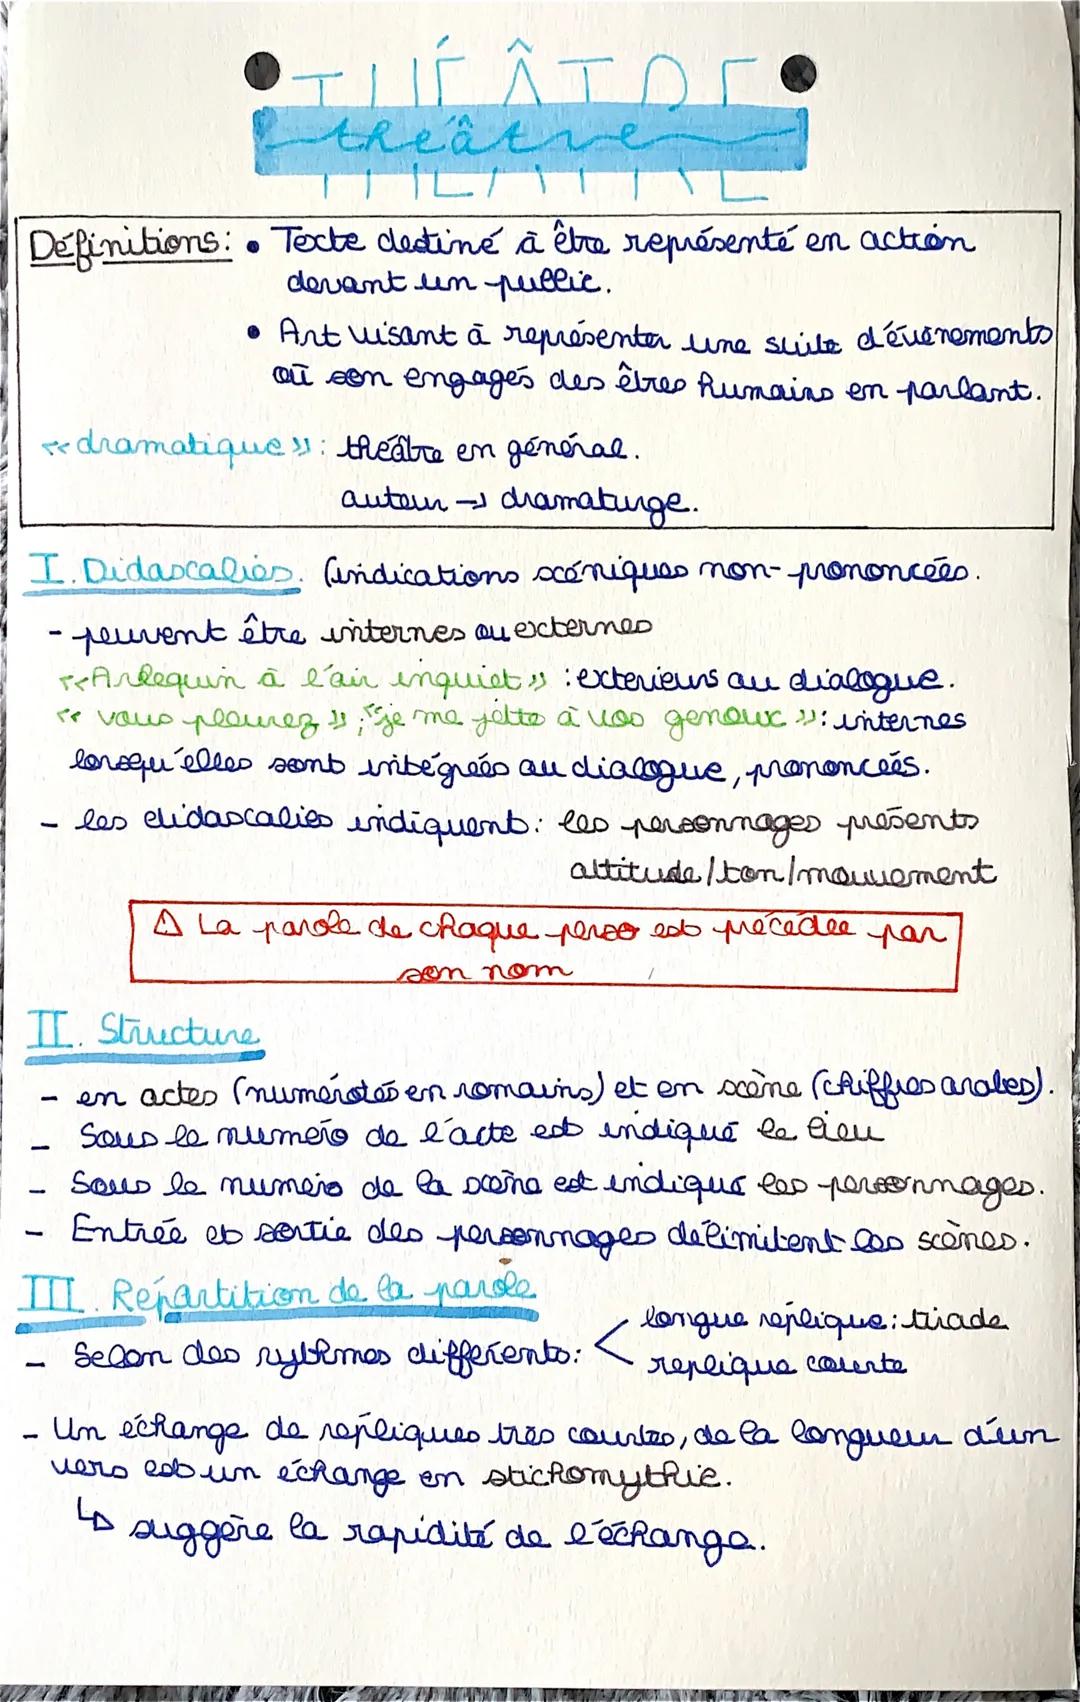 THÉÂTRE
théâtre
Définitions: • Texte destiné à être représenté en action
devant un public.
• Art visant à représenter une suite d'événements
où son engagés des êtres humains en parlant.
«dramatique»: théâtre en général.
auteur → dramaturge.
I. Didascalies. (indications scéniques non-prononcées.
- peuvent être internes ou externes
«Arlequin à l'air inquiet» : exterieurs au dialogue.
« vous pleurez »; "je me jette à vos genoux »: internes
lorsqu'elles sont intégrées au dialogue, prononcées.
- les didascalies indiquent: les personnages présents
attitude/ton/mouvement
⚠ La parole de chaque perso est précédée par
son nom
II. Structure
- en actes (numérotés en romains) et en scène (chiffres arabes).
- Sous le numéro de l'acte est indiqué le lieu
- Sous le numéro de la scène est indiqué les personnages.
- Entrée et sortie des personnages délimitent les scènes.
III. Répartition de la parole
- Selon des rythmes différents: < longue réplique: tirade
replique courte
- Un échange de répliques très courtes, de la longueur d'un
vers est un échange en stichomythie.
↳ suggère la rapidité de l'échange.